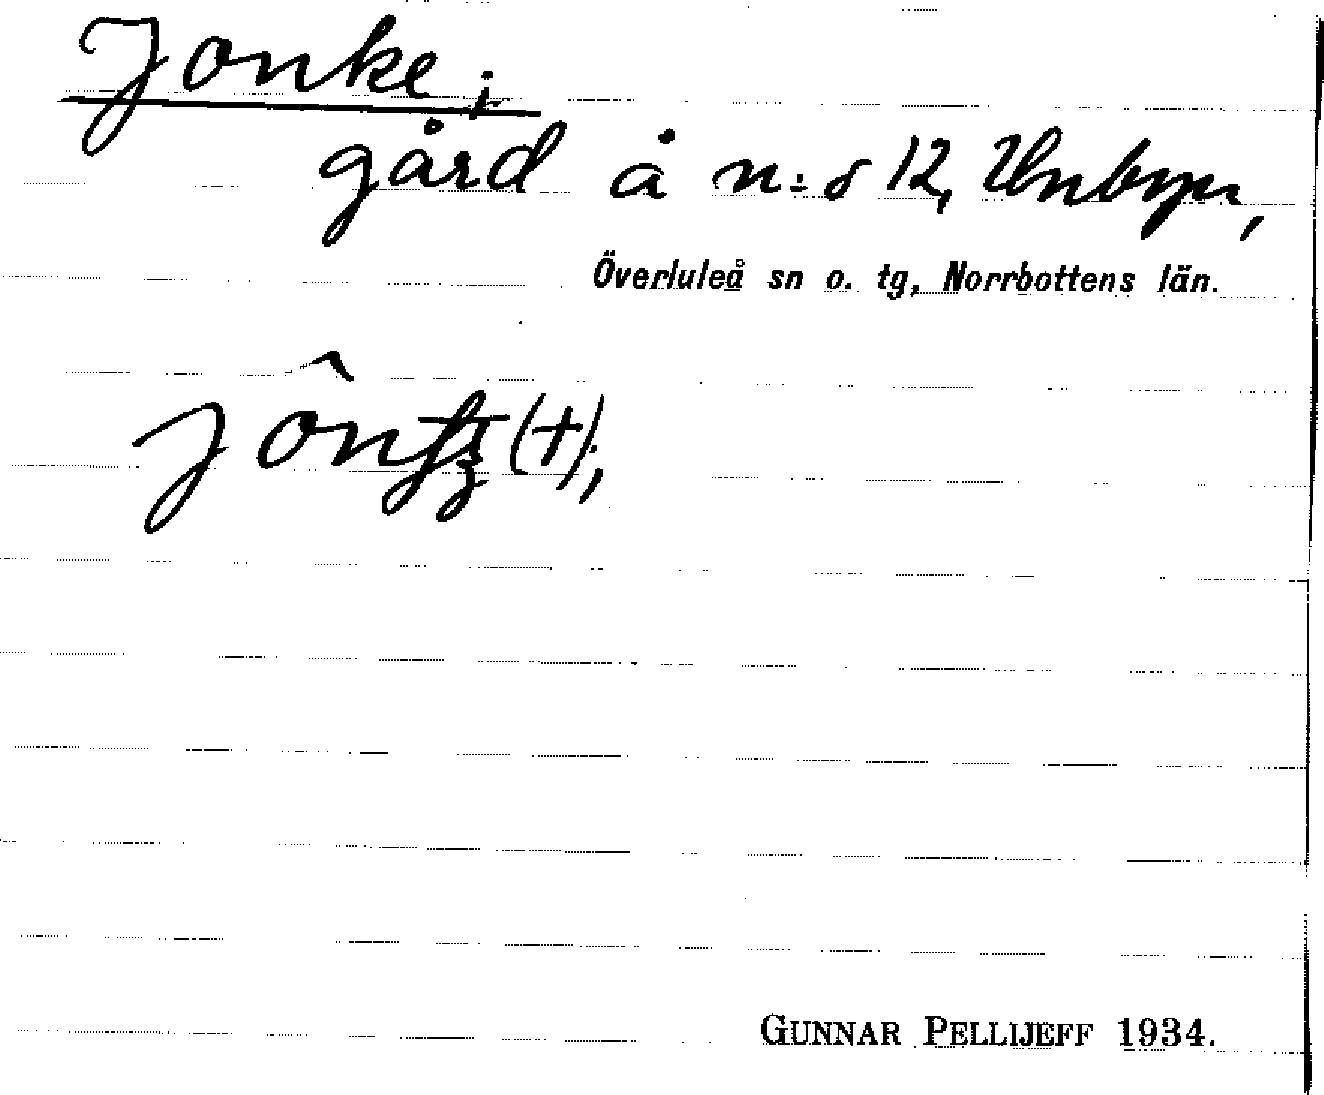 Jonke;
gård å n:o 12, Unbyn,
Överluleå sn o. tg, Norrbottens län.
(+);
GUNNAR PELLIJEFF 1934.